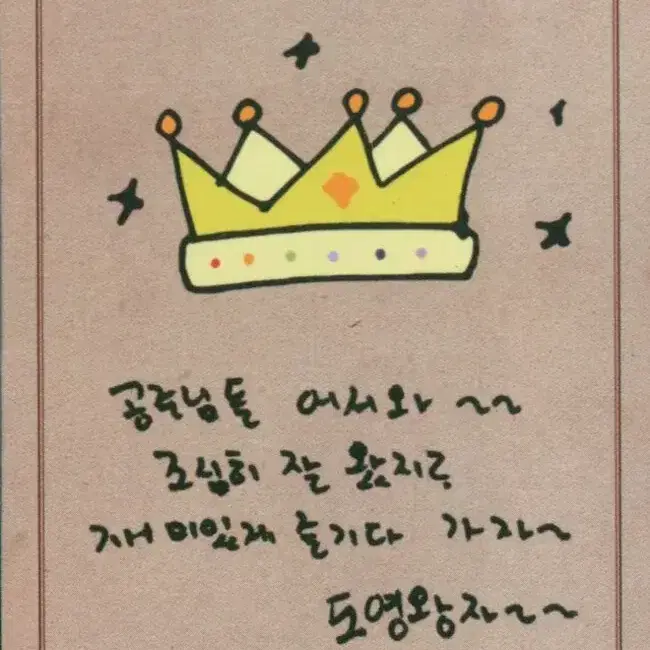 공주님들 어서와 ~~
조심히 잘 왔지?
재미있게 즐기다 가자~
도영왕자~~